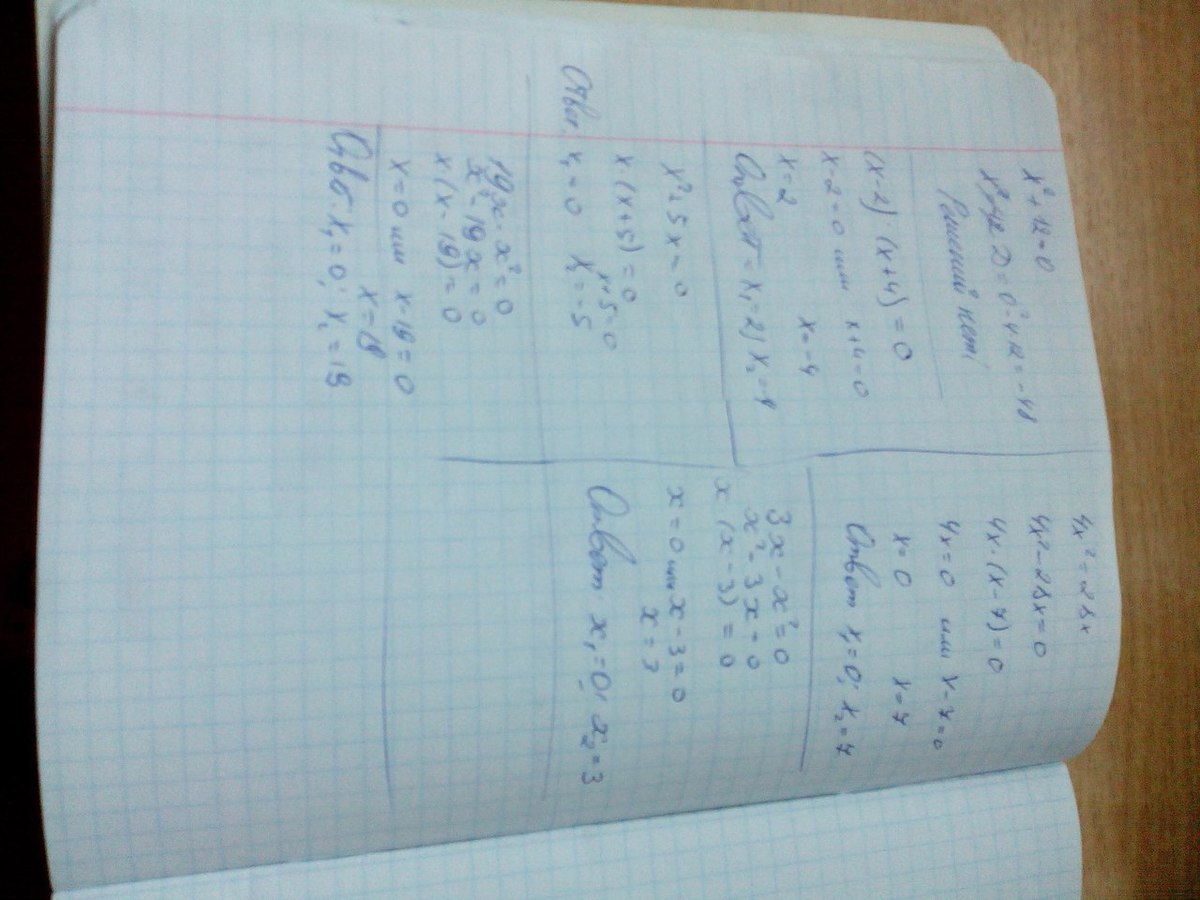 x² + 12 = 0
D = 0² - 4·12 = -48
Решений нет!
(x-2)·(x+4) = 0
x-2=0 или x+4=0
x=2 x=-4
Ответ = x₁=2; x₂=-4
x² 5x = 0
x·(x+5) = 0
x+5=0
Ответ x₁=0 x₂=-5
19x - x² = 0
x² - 19x = 0
x·(x-19) = 0
x=0 или x-19=0
x=19
Ответ: x₁=0; x₂=19
4x² = 28x
4x² - 28x = 0
4x·(x-7) = 0
4x=0 или x-7=0
x=0 x=7
Ответ x₁=0; x₂=7
3x - x² = 0
x² - 3x = 0
x (x-3) = 0
x=0 или x-3=0
x=3
Ответ x₁=0; x₂=3